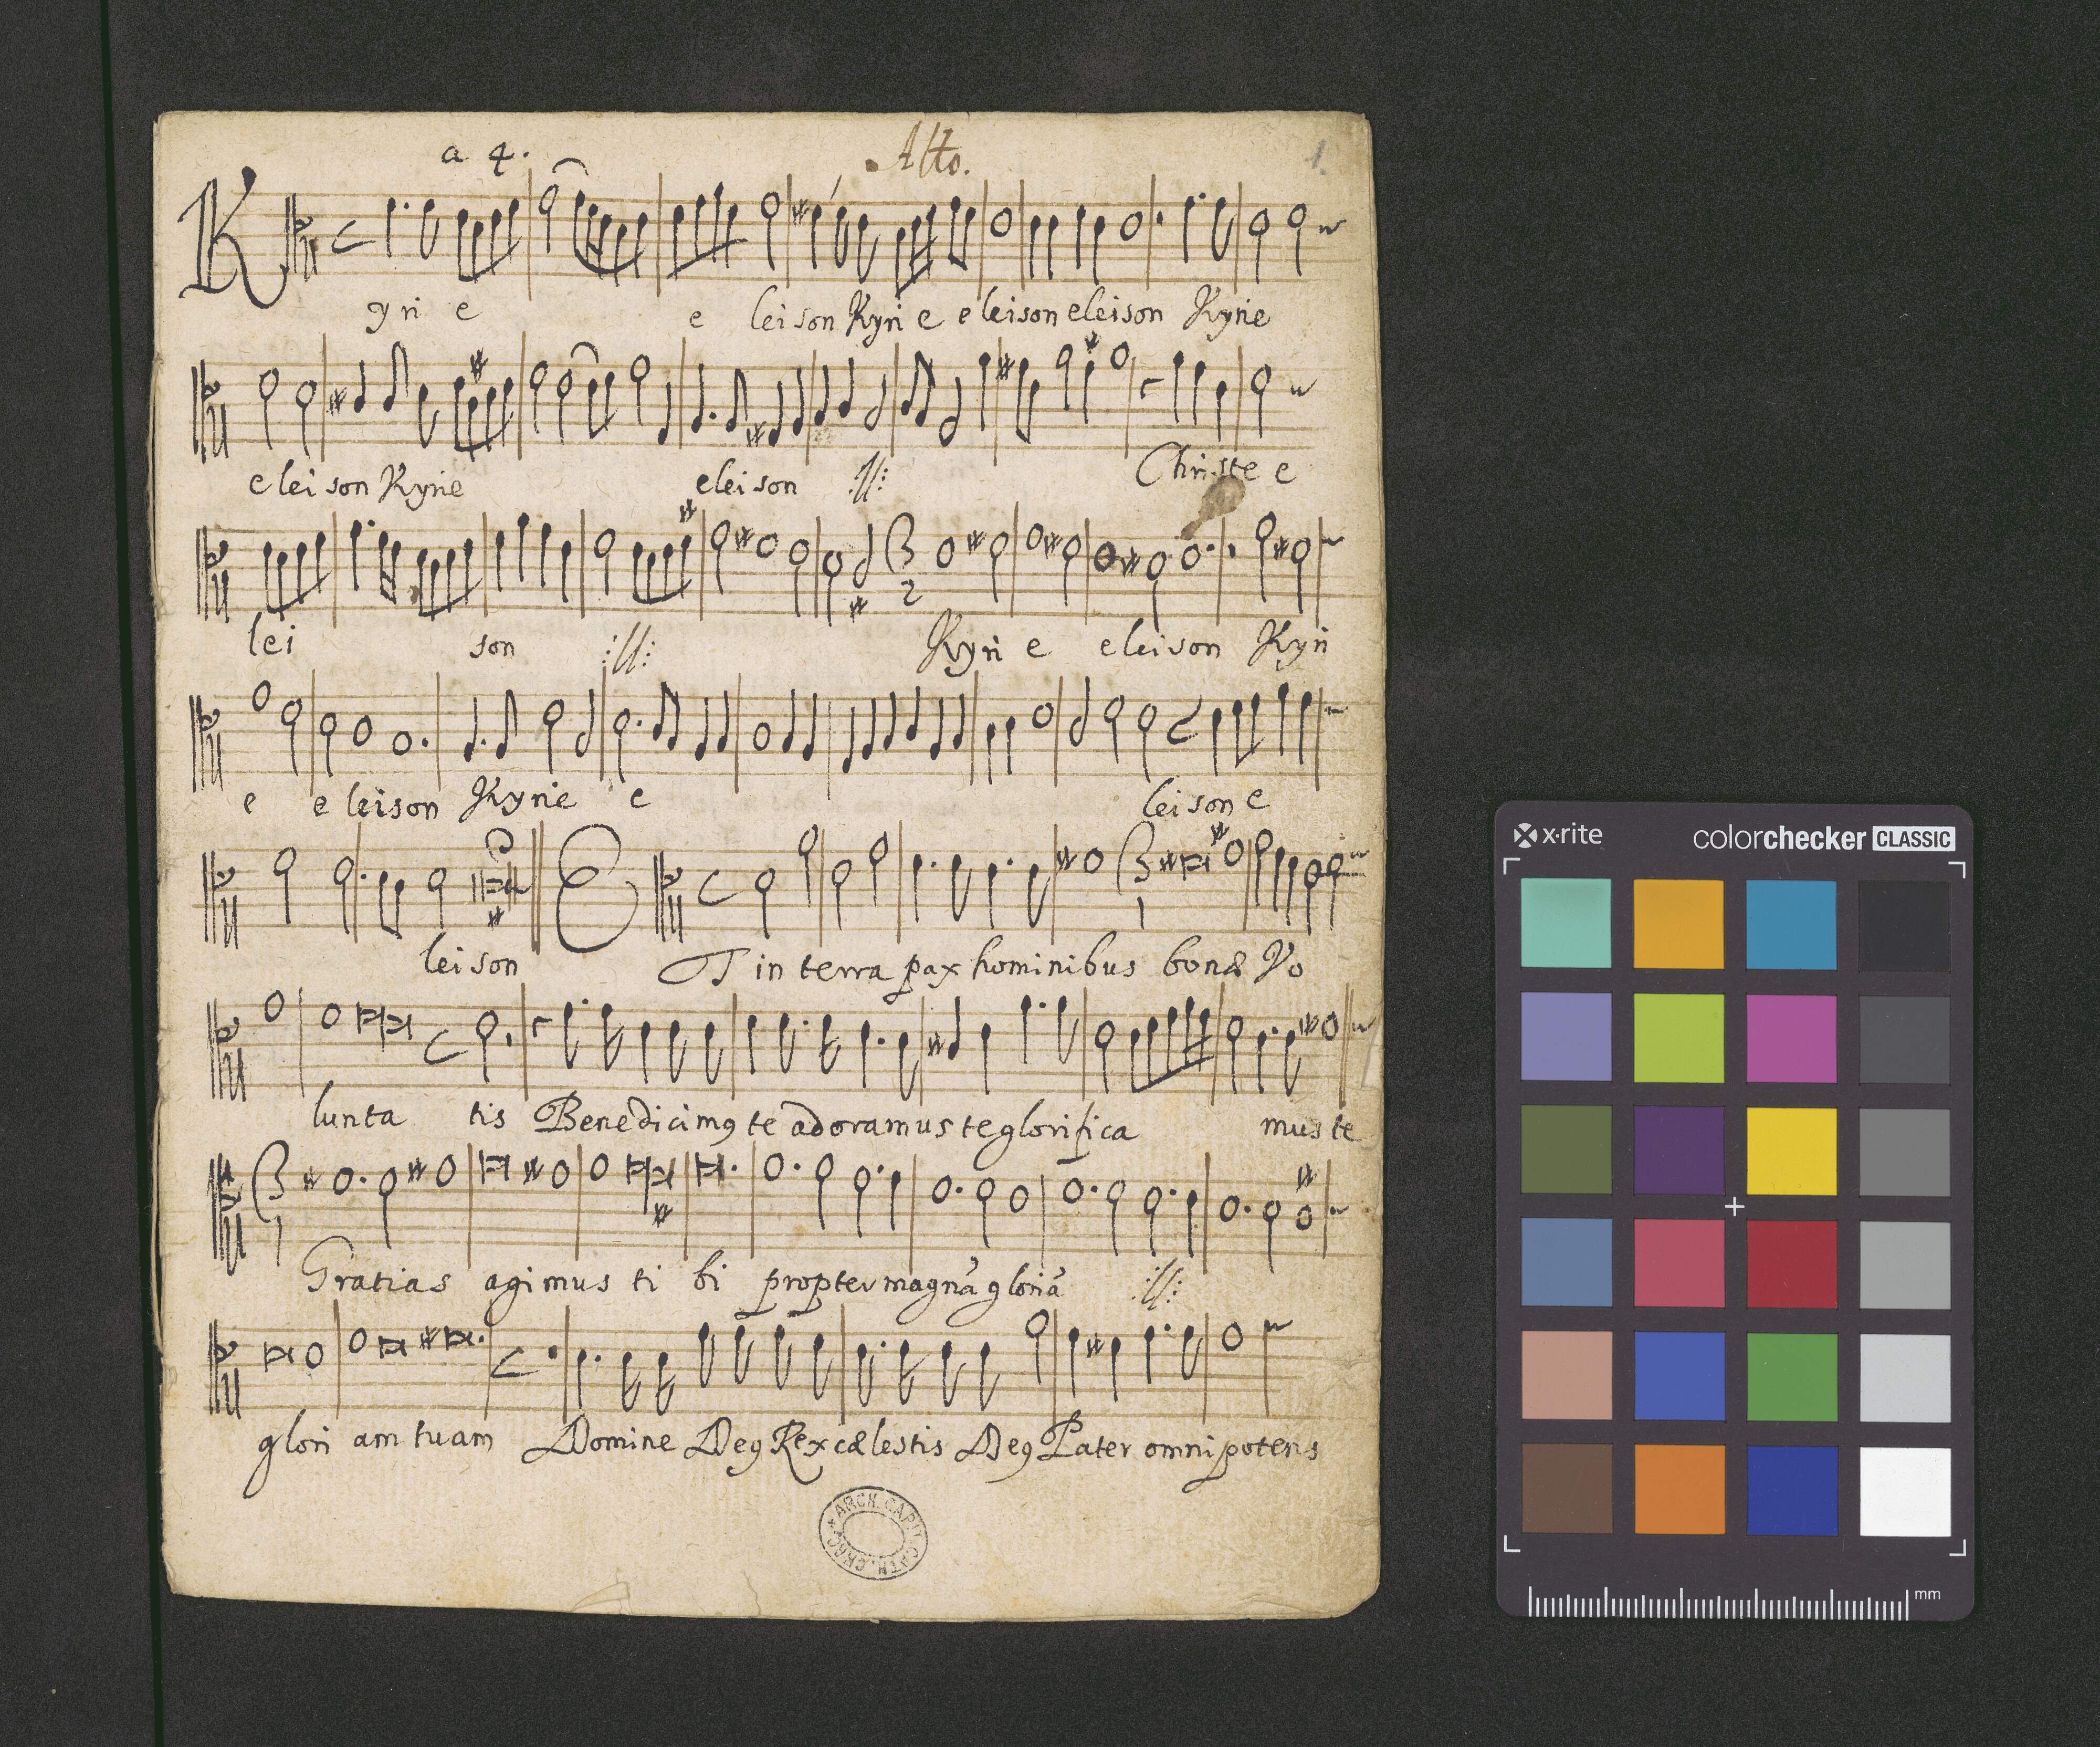 a 4. Alto. 1.
Kyri e e lei son Kyri e e leison eleison Kyrie
e lei son Kyrie elei son :||: Christe e
lei son :||: Kyri e e leison Kyri
e e leison Kyrie e leison e
lei son ET in terra pax hominibus bonæ Vo
3
2
3
1
lunta tis Benedicimꝰ te adoramus te glorifica mus te
3
1
Gratias agimus ti bi propter magnã gloriã :||:
glori am tuam Domine Deꝰ Rex cælestis Deꝰ Pater omnipotens
ARCH. CAPIT. CATH. CRAC.
x·rite colorchecker CLASSIC
mm